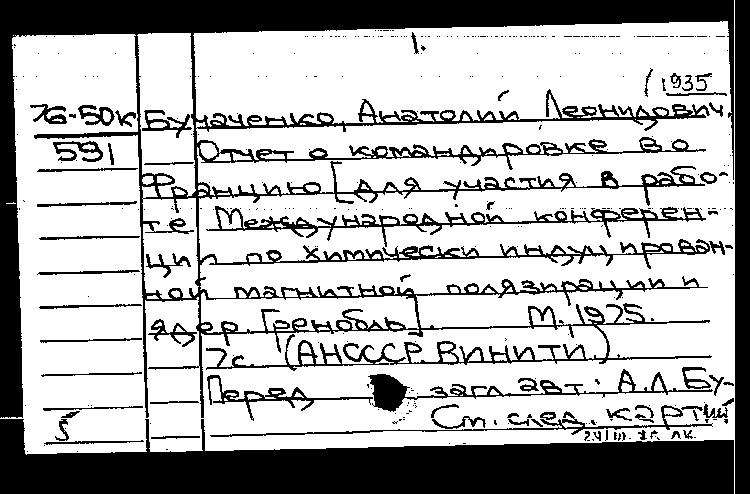 1.
/1935
76-50к Бучаченко, Анатолий Леонидович.
591 Отчет о командировке во
Францию [для участия в рабо-
те Международной конферен-
ции по химически индуцирован-
ной магнитной полязирации и
ядер. Гренобль]. М., 1975.
7с. (АН СССР. ВИНИТИ.).
Перед загл. авт.: А.Л.Бу-
5 См. след. карт